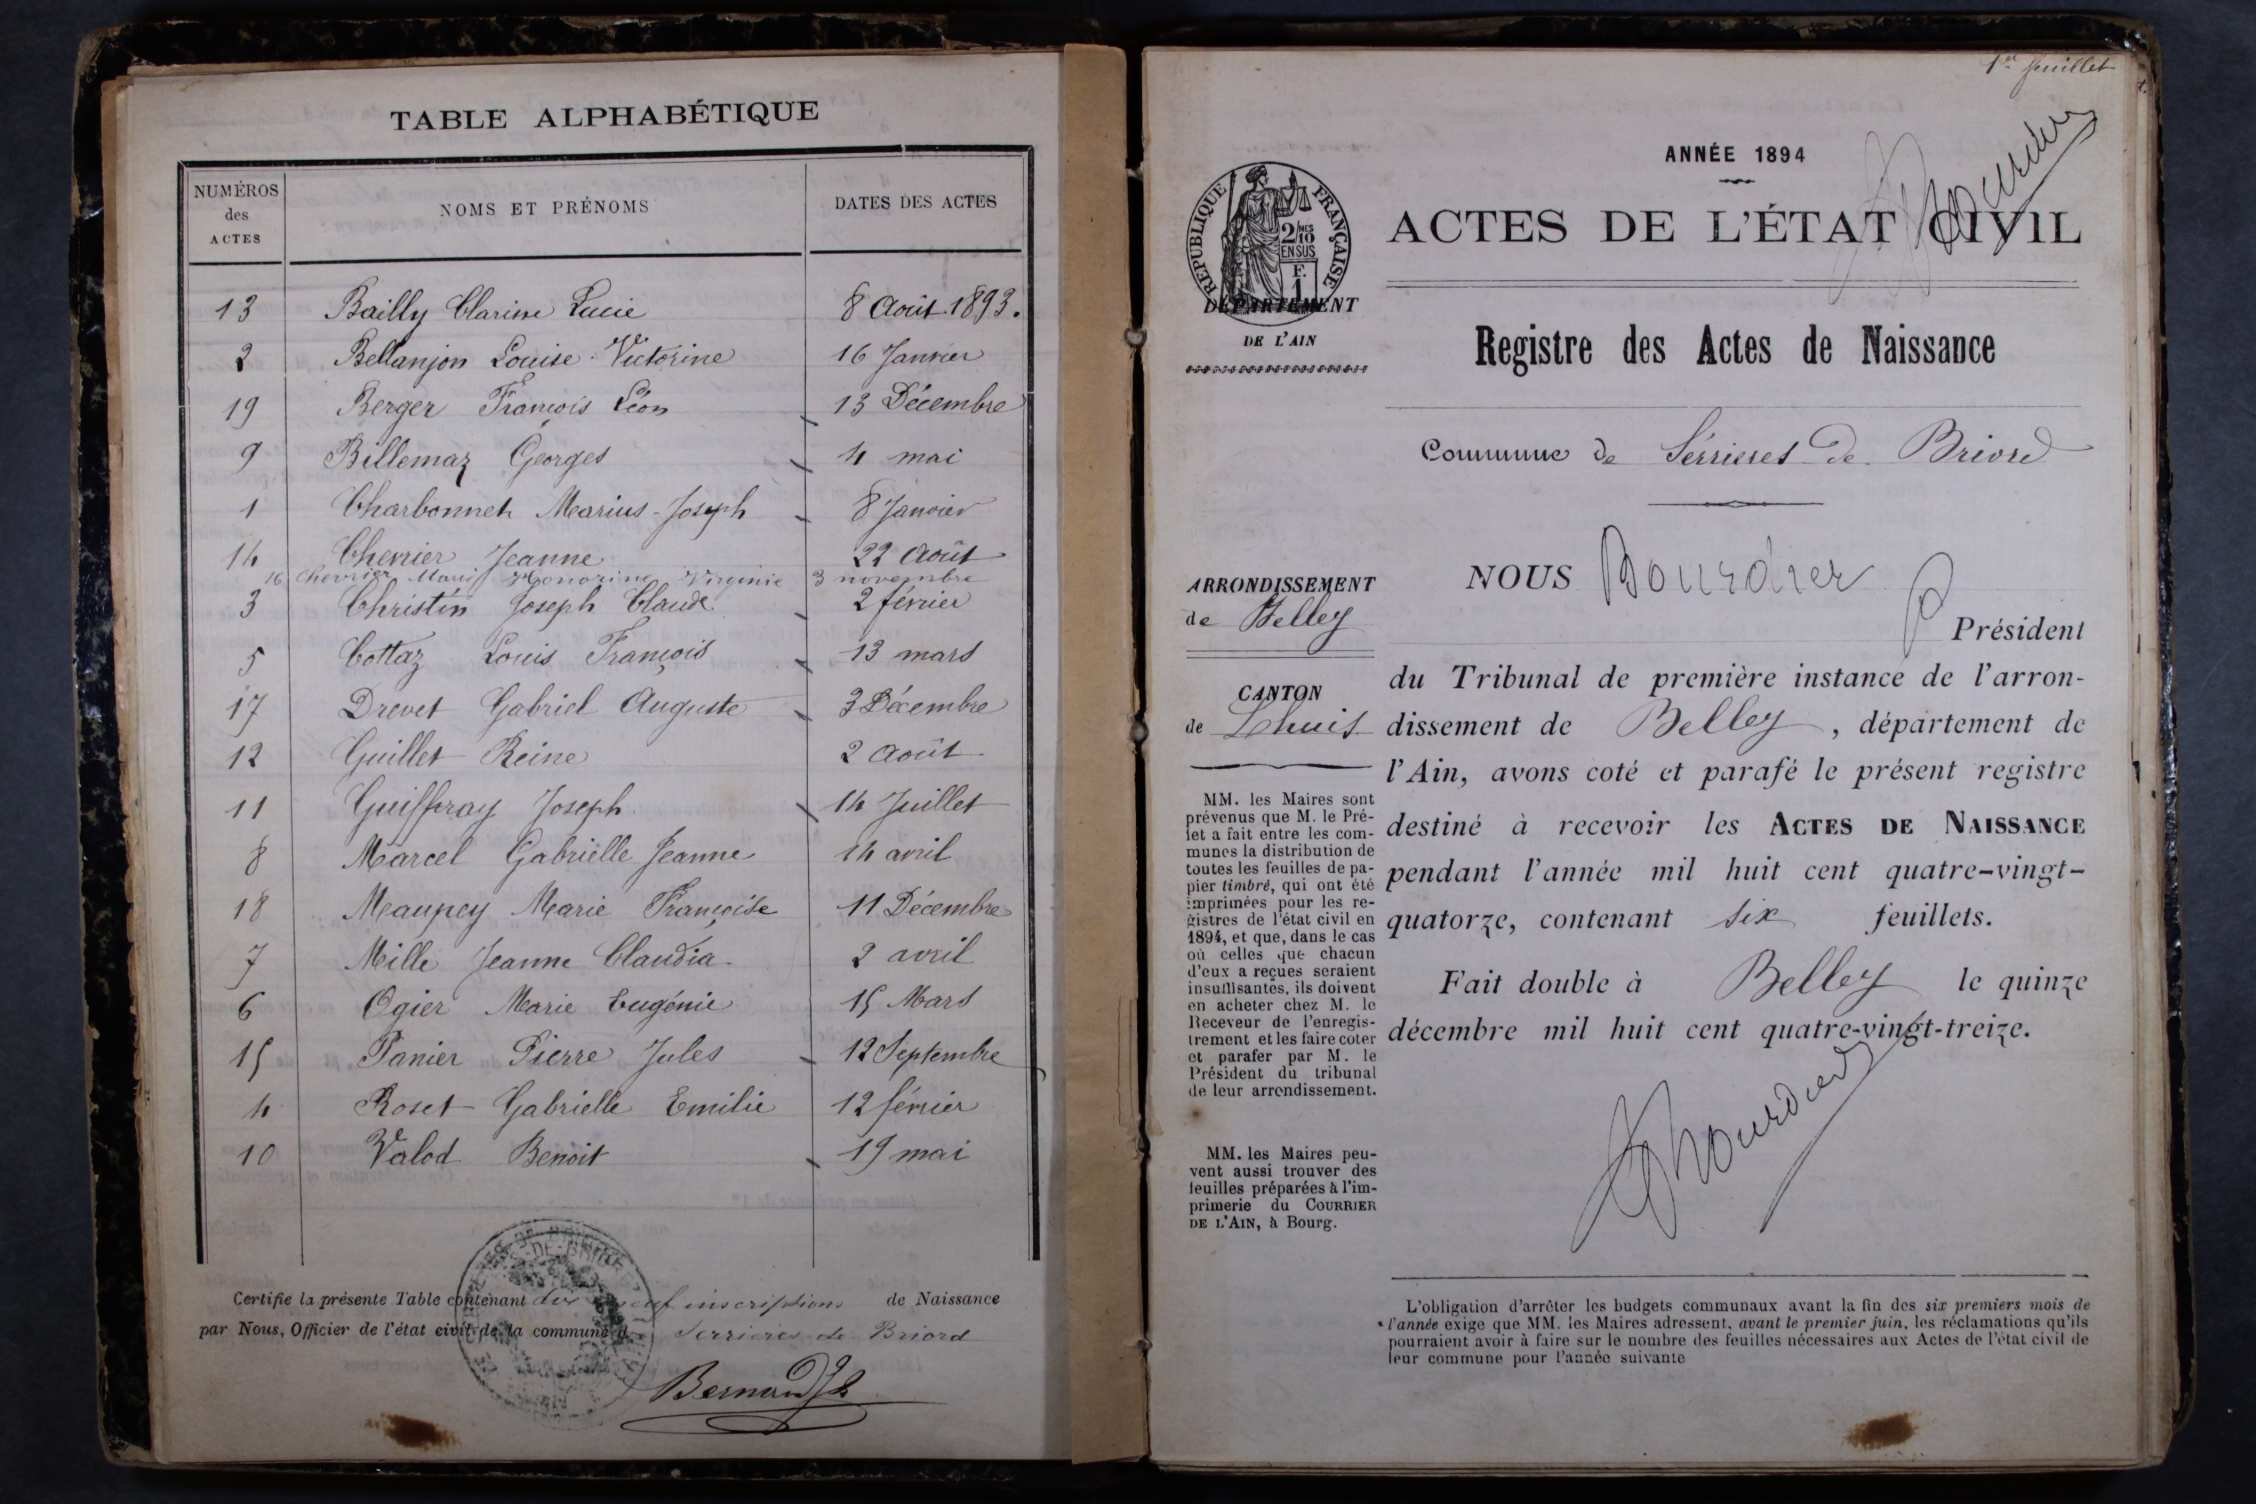 TABLE ALPHABÉTIQUE
NUMÉROS des ACTES NOMS ET PRÉNOMS DATES DES ACTES
13 Bailly Clarisse Lucie 8 Août 1893.
2 Bellanjon Louise Victorine 16 Janvier
19 Berger François Léon 13 Décembre
9 Billemaz Georges 4 mai
1 Charbonnet Marius-Joseph 8 Janvier
14 Chevrier Jeanne 22 Août
16 Chevrier Marie Honorine Virginie 3 novembre
3 Christin Joseph Claude 2 février
5 Cottaz Louis François 13 mars
17 Drevet Gabriel Auguste 3 Décembre
12 Guillet Reine 2 Août
11 Guiffray Joseph 14 Juillet
8 Marcel Gabrielle Jeanne 14 avril
18 Maupey Marie Françoise 11 Décembre
7 Mille Jeanne Claudia 2 avril
6 Ogier Marie Eugénie 15 Mars
15 Panier Pierre Jules 12 Septembre
4 Roset Gabrielle Emilie 12 février
10 Valod Benoit 19 mai
Certifie la présente Table contenant dix neuf inscriptions de Naissance
par Nous, Officier de l'état civil de la commune d Serrieres de Briord
Bernard
1er feuillet
ANNÉE 1894
ACTES DE L'ÉTAT CIVIL
RÉPUBLIQUE FRANÇAISE
2/10MES
EN SUS
F.
1
DÉPARTEMENT
DE L'AIN
Registre des Actes de Naissance
Commune de Sérrieres de Briord
ARRONDISSEMENT
de Belley
CANTON
de Lhuis
MM. les Maires sont
prévenus que M. le Pré-
fet a fait entre les com-
munes la distribution de
toutes les feuilles de pa-
pier timbré, qui ont été
imprimées pour les re-
gistres de l'état civil en
1894, et que, dans le cas
où celles que chacun
d'eux a reçues seraient
insuffisantes, ils doivent
en acheter chez M. le
Receveur de l'enregis-
trement et les faire coter
et parafer par M. le
Président du tribunal
de leur arrondissement.
MM. les Maires peu-
vent aussi trouver des
feuilles préparées à l'im-
primerie du COURRIER
DE L'AIN, à Bourg.
NOUS Bourdier
Président
du Tribunal de première instance de l'arron-
dissement de Belley, département de
l'Ain, avons coté et parafé le présent registre
destiné à recevoir les ACTES DE NAISSANCE
pendant l'année mil huit cent quatre-vingt-
quatorze, contenant six feuillets.
Fait double à Belley le quinze
décembre mil huit cent quatre-vingt-treize.
Bourdier
L'obligation d'arrêter les budgets communaux avant la fin des six premiers mois de
l'année exige que MM. les Maires adressent, avant le premier juin, les réclamations qu'ils
pourraient avoir à faire sur le nombre des feuilles nécessaires aux Actes de l'état civil de
leur commune pour l'année suivante